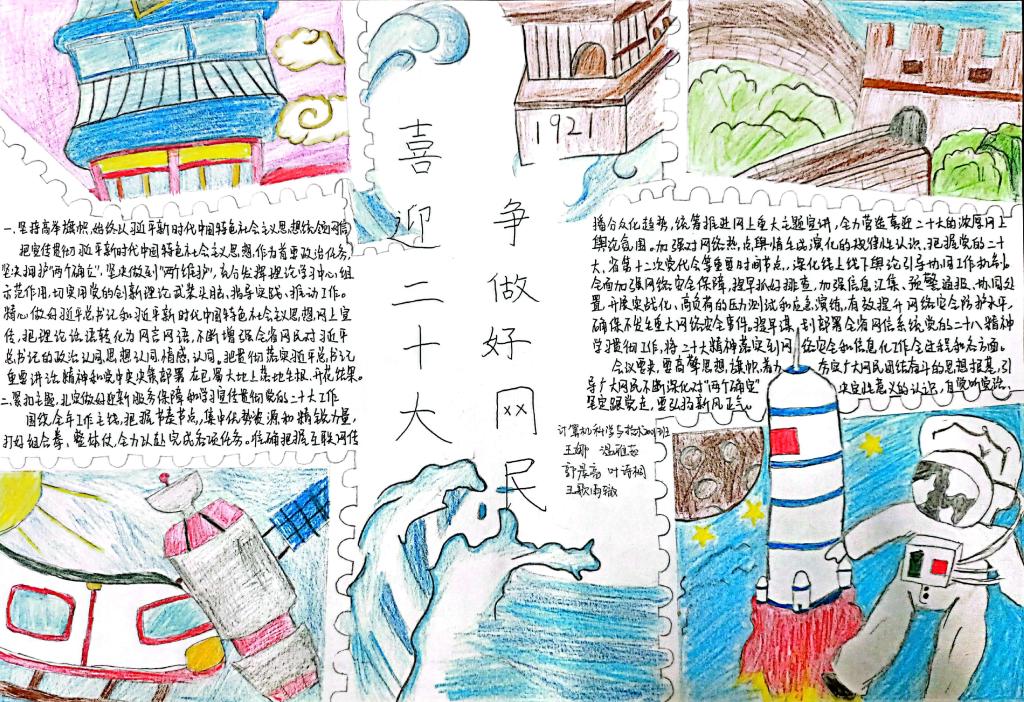 喜迎二十大
争做好网民
1921
一.坚持高举旗帜,始终以习近平新时代中国特色社会主义思想统领网信
把宣传贯彻习近平新时代中国特色社会主义思想,作为首要政治任务,
坚决拥护"两个确立",坚决做到"两个维护",充分发挥理论学习中心组
示范作用,切实用党的创新理论武装头脑、指导实践、推动工作。
精心做好习近平总书记和习近平新时代中国特色社会主义思想网上宣
传,把理论话语转化为网言网语,不断增强全省网民对习近平
总书记的政治认同,思想认同,情感认同。把贯彻落实习近平总书记
重要讲话精神和党中央决策部署在巴蜀大地上落地生根、开花结果。
二.紧扣主题,扎实做好迎新服务保障和学习宣传贯彻党的二十大工作
围绕全年工作主线,把握节奏节点,集中优势资源和精锐力量,
打好组合拳、整体仗,全力以赴完成各项任务。准确把握互联网传
播分众化趋势,统筹推进网上重大主题宣讲,全力营造喜迎二十大的浓厚网上
舆论氛围。加强对网络热点舆情生成演化的规律性认识,把握党的二十
大、省第十二次党代会等重要时间节点,深化线上线下舆论引导协同工作机制。
全面加强网络安全保障,提早抓好排查,加强信息汇集、预警通报、协同处
置,开展实战化、高负荷的压力测试和应急演练,有效提升网络安全防护水平,
确保不发生重大网络安全事件。提早谋划部署全省网信系统党的二十大精神
学习贯彻工作,将二十大精神落实到网络安全和信息化工作全过程和各方面。
会议要求,要高擎思想旗帜,着力 广大网民团结奋斗的思想根基,引
导广大网民不断深化对"两个确立" 决定性意义的认识,自觉听党话、
坚定跟党走,要弘扬新风正气。
计算机科学与技术 班
王娜 温雅茹
郭晨亮 叶诗桐
王歌雨辙